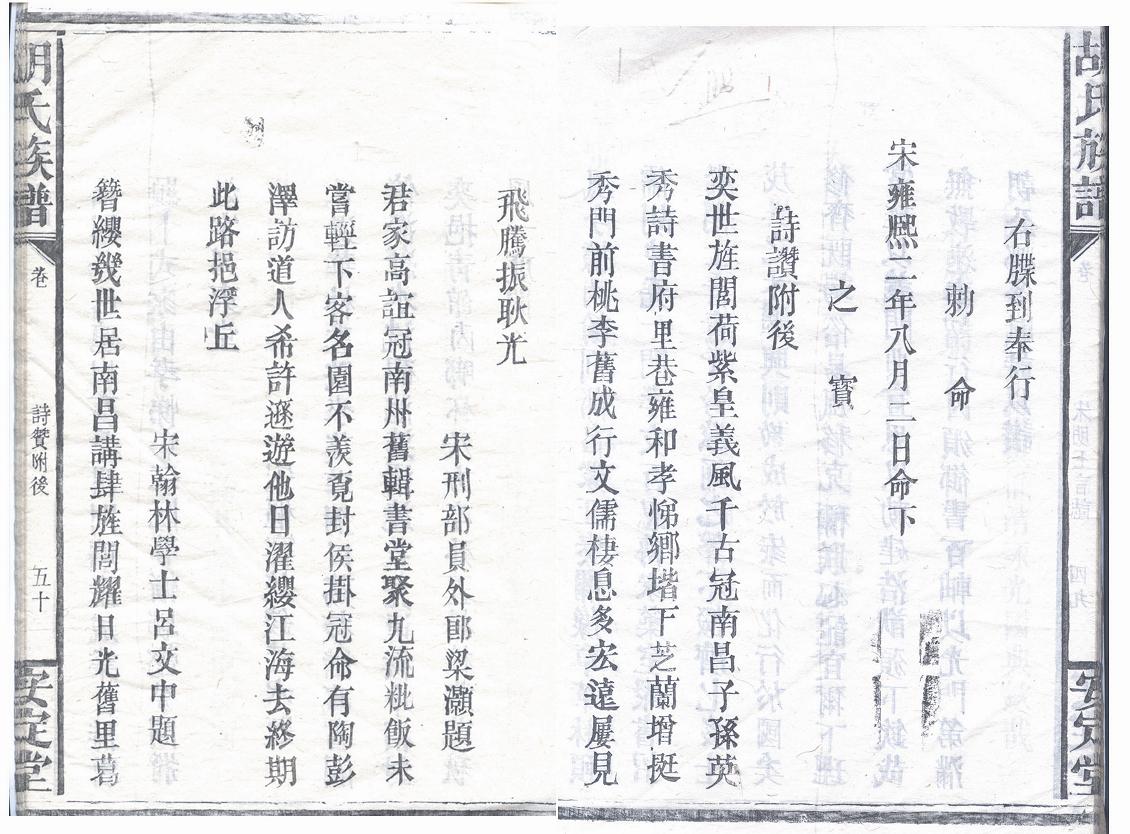 胡氏族譜
卷
安定堂
右牒到奉行
勅命
宋雍熙二年八月二日命下
之寶
詩讚附後
奕世旌閭荷紫皇義風千古冠南昌子孫英
秀詩書府里巷雍和孝悌鄉堦下芝蘭增挺
秀門前桃李舊成行文儒棲息多宏遠屢見
飛騰振耿光
宋刑部員外郎梁灝題
君家高誼冠南州舊輯書堂聚九流粃飯未
嘗輕下客名園不羨覔封侯掛冠命有陶彭
澤訪道人希許遜遊他日濯纓江海去終期
此路挹浮丘
宋翰林學士呂文中題
簪纓幾世居南昌講肆旌閭耀日光舊里葛
胡氏族譜
卷
詩贊附後
五十
安定堂